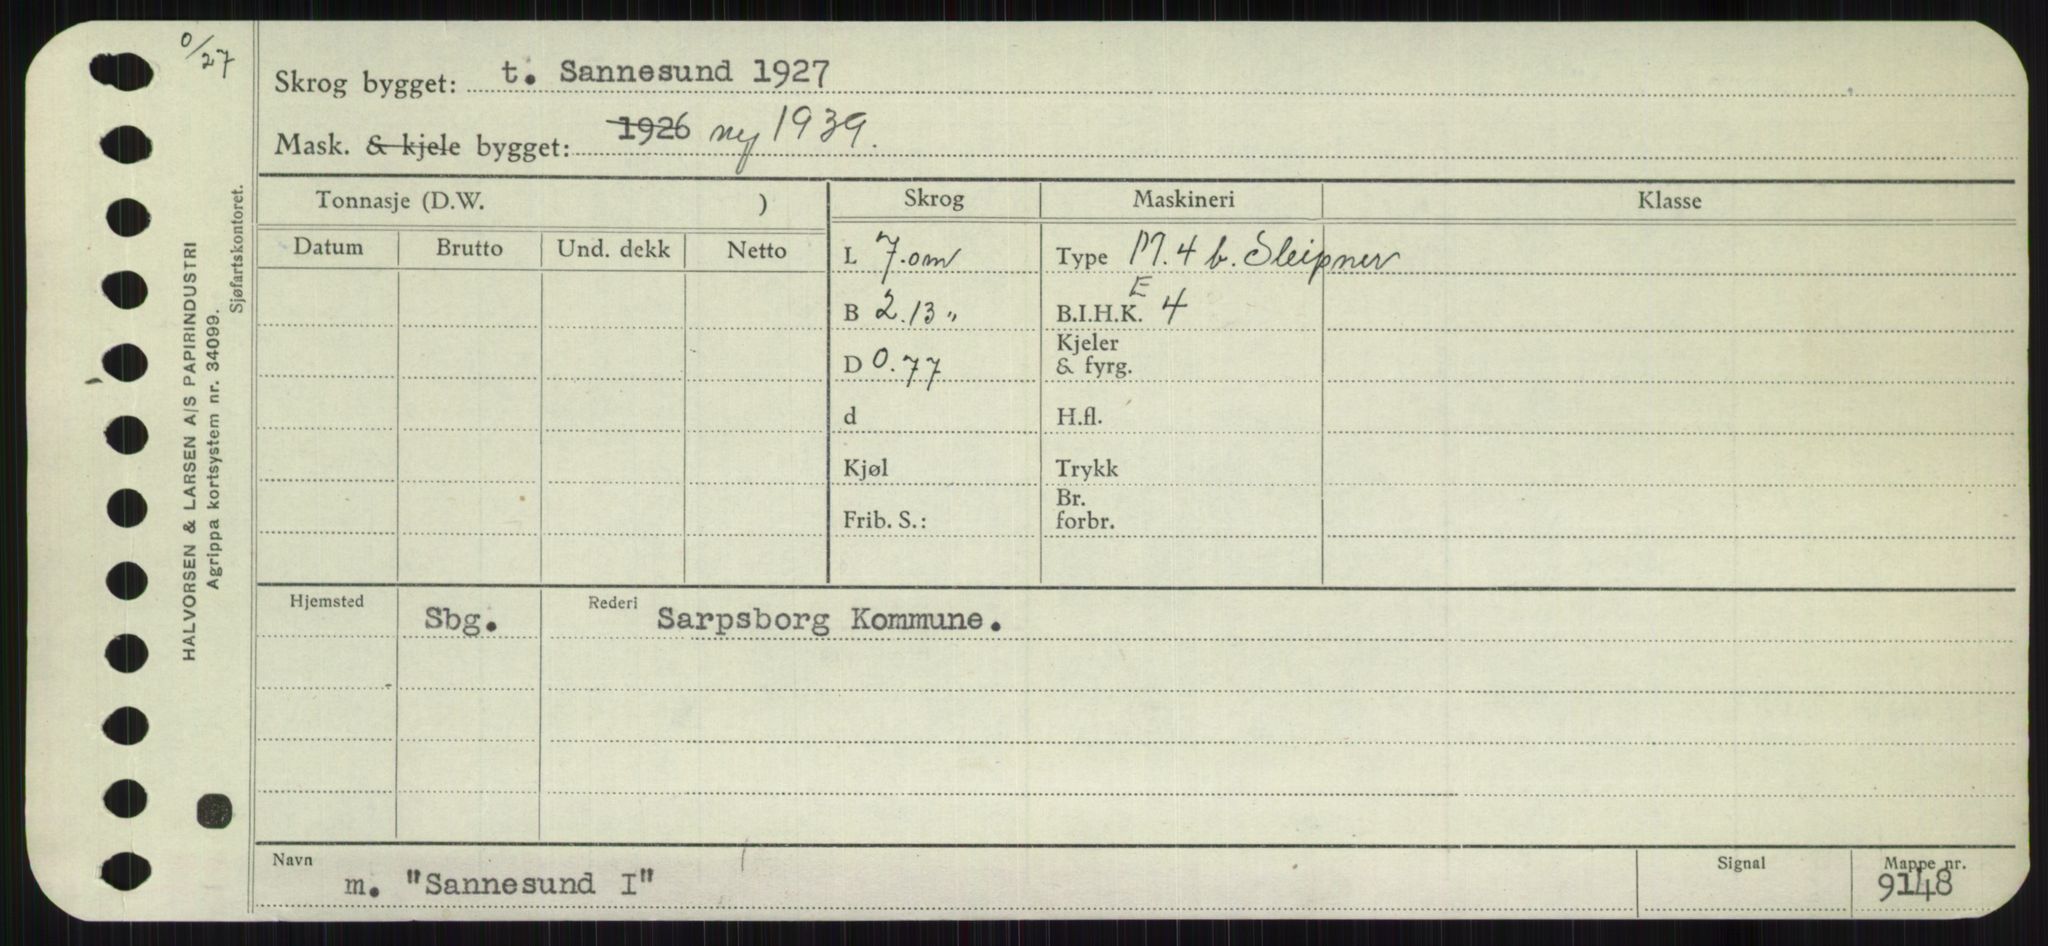 0/27
Skrog bygget: t. Sannesund 1927
Mask. & kjele bygget: 1926 ny 1939.
Tonnasje (D.W. )
Skrog
Maskineri
Klasse
Datum
Brutto
Und. dekk
Netto
L 7.0m
Type M. 4 b. Sleipner
B 2.13 „
E
B.I.H.K. 4
D 0.77
Kjeler
& fyrg.
d
H.fl.
Kjøl
Trykk
Frib. S.:
Br.
forbr.
Hjemsted Sbg. Rederi Sarpsborg Kommune.
Navn m. "Sannesund I"
Signal
Mappe nr. 9148
HALVORSEN & LARSEN A/S PAPIRINDUSTRI
Agrippa kortsystem nr. 34099.
Sjøfartskontoret.